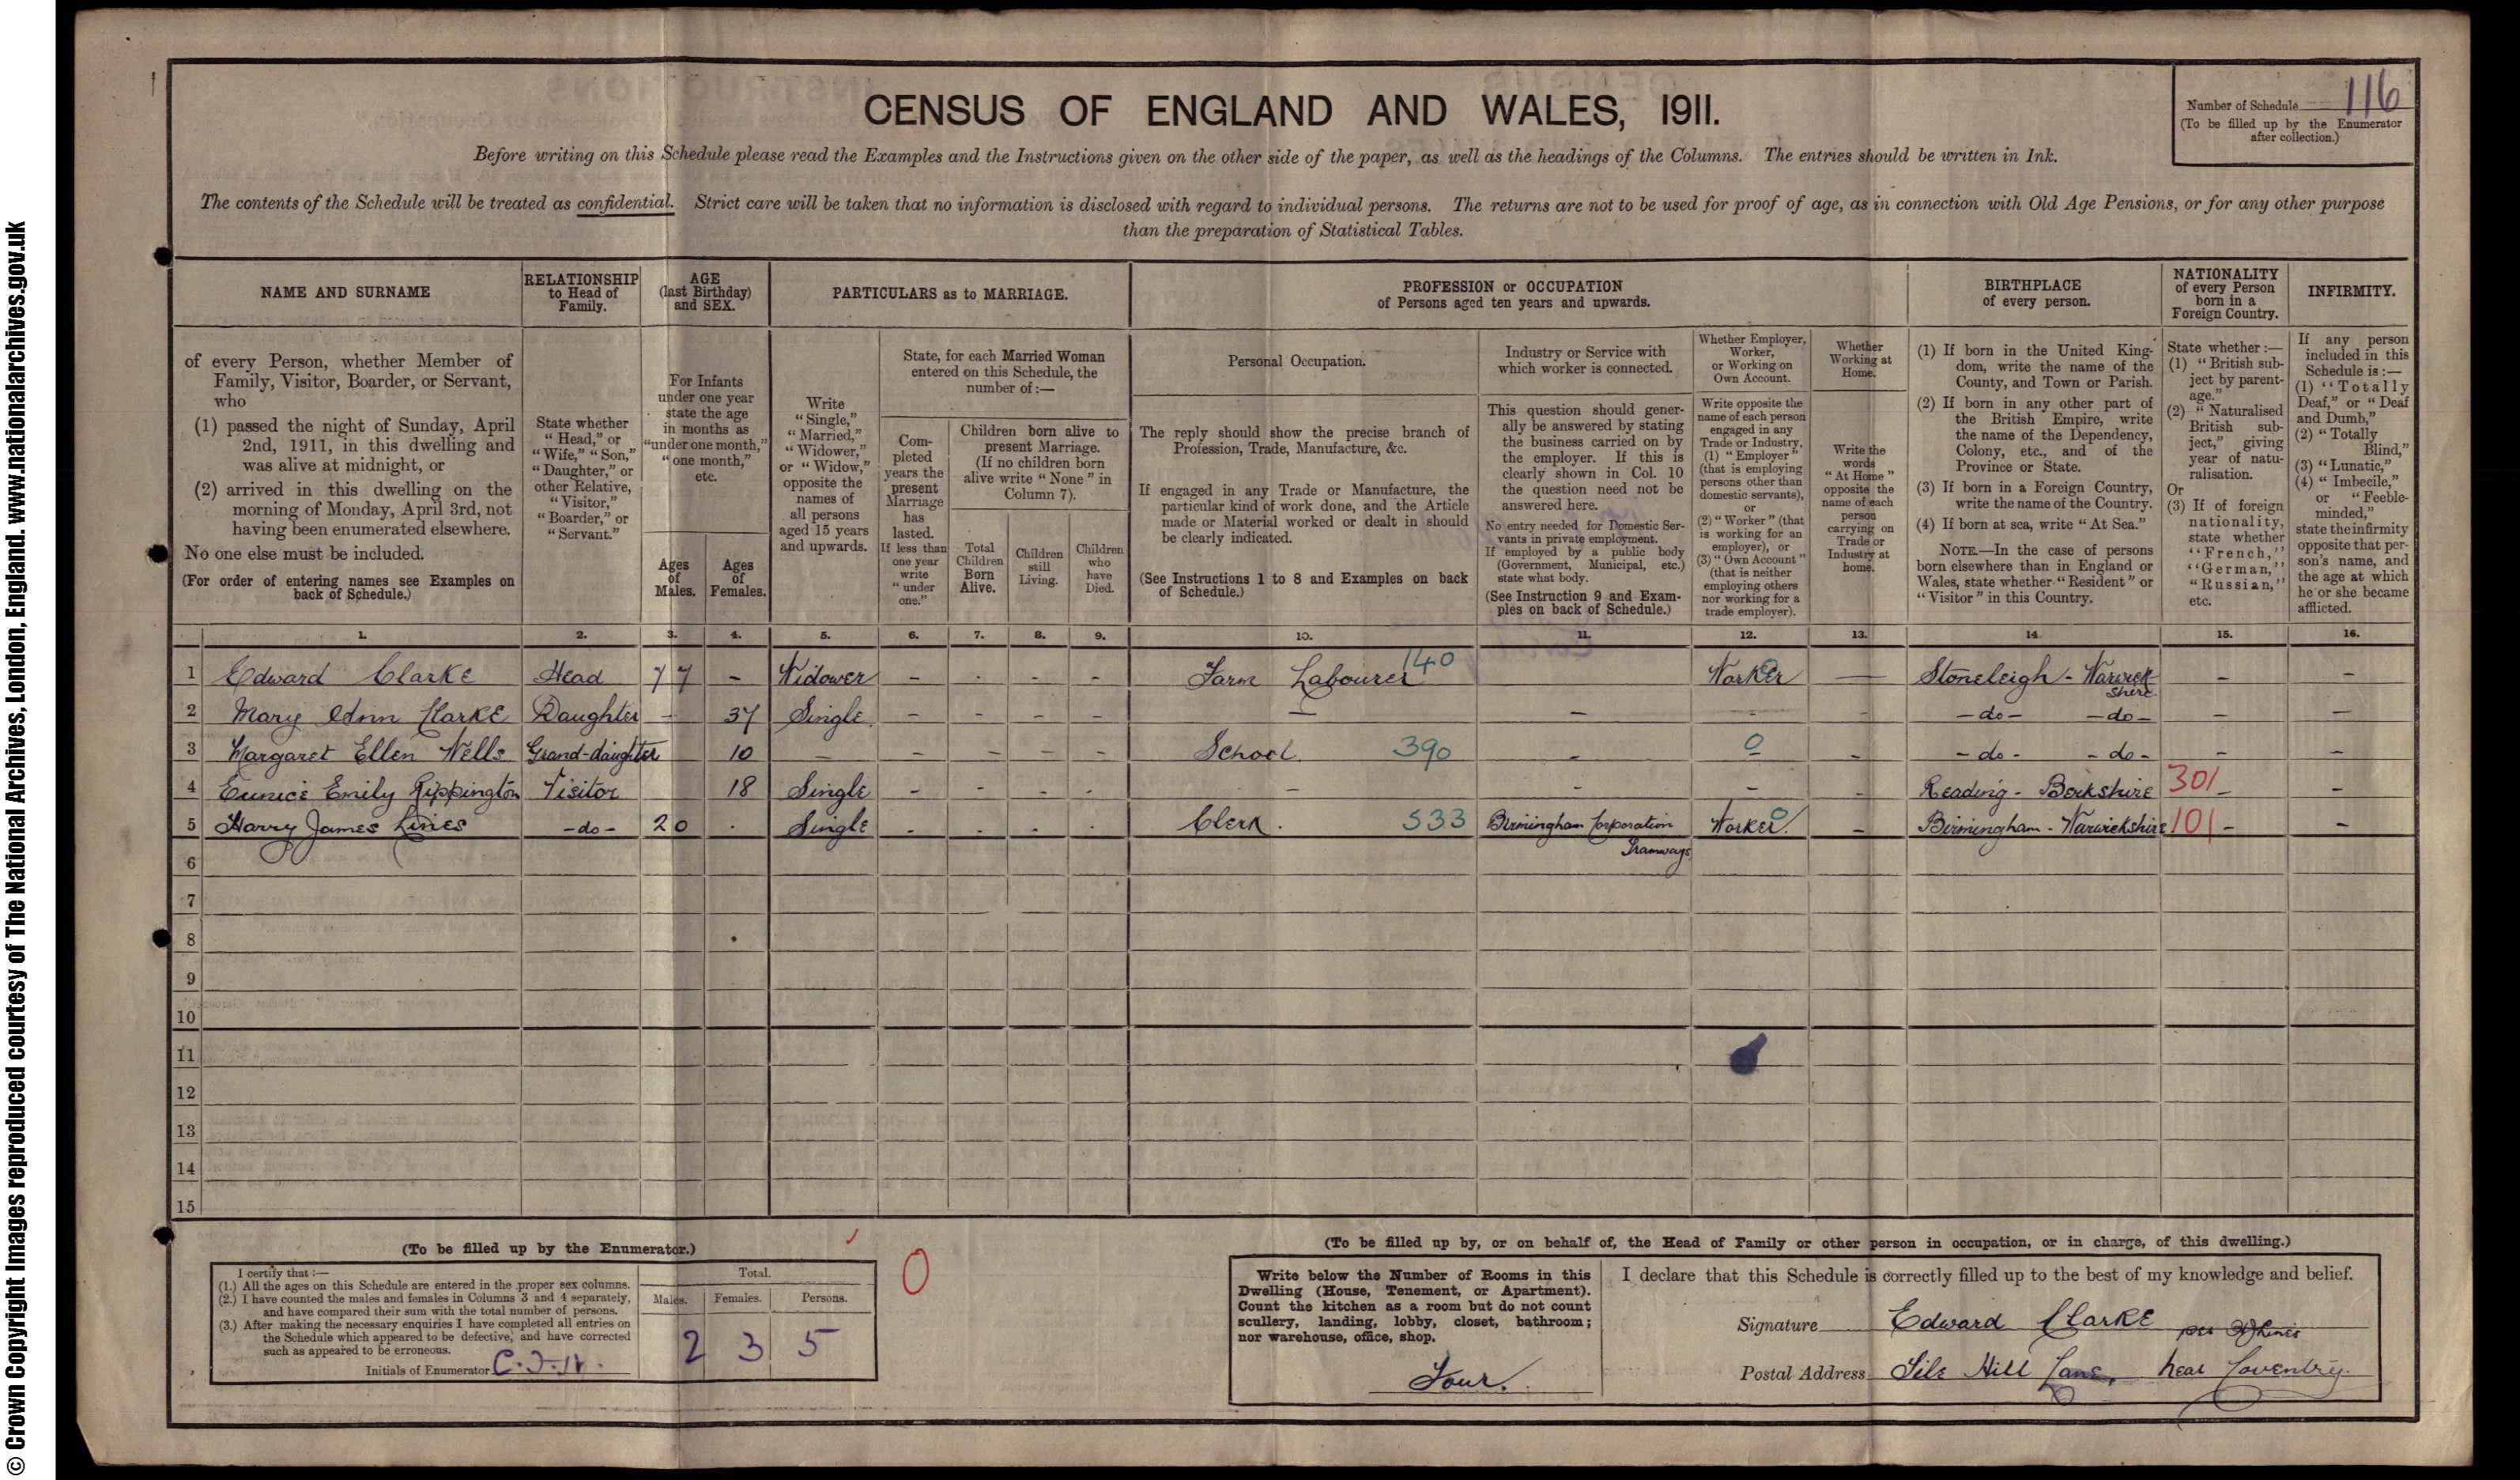 © Crown Copyright Images reproduced courtesy of The National Archives, London, England. www.nationalarchives.gov.uk
CENSUS OF ENGLAND AND WALES, 1911.
Number of Schedule 116
(To be filled up by the Enumerator
after collection.)
Before writing on this Schedule please read the Examples and the Instructions given on the other side of the paper, as well as the headings of the Columns. The entries should be written in Ink.
The contents of the Schedule will be treated as confidential. Strict care will be taken that no information is disclosed with regard to individual persons. The returns are not to be used for proof of age, as in connection with Old Age Pensions, or for any other purpose
than the preparation of Statistical Tables.
NAME AND SURNAME
of every Person, whether Member of
Family, Visitor, Boarder, or Servant,
who
(1) passed the night of Sunday, April
2nd, 1911, in this dwelling and
was alive at midnight, or
(2) arrived in this dwelling on the
morning of Monday, April 3rd, not
having been enumerated elsewhere.
No one else must be included.
(For order of entering names see Examples on
back of Schedule.)
RELATIONSHIP
to Head of
Family.
State whether
"Head," or
"Wife," "Son,"
"Daughter," or
other Relative,
"Visitor,"
"Boarder," or
"Servant."
AGE
(last Birthday)
and SEX.
For Infants
under one year
state the age
in months as
"under one month,"
"one month,"
etc.
Ages
of
Males.
Ages
of
Females.
PARTICULARS as to MARRIAGE.
Write
"Single,"
"Married,"
"Widower,"
or "Widow,"
opposite the
names of
all persons
aged 15 years
and upwards.
State, for each Married Woman
entered on this Schedule, the
number of:—
Com-
pleted
years the
present
Marriage
has
lasted.
If less than
one year
write
"under
one."
Children born alive to
present Marriage.
(If no children born
alive write "None" in
Column 7).
Total
Children
Born
Alive.
Children
still
Living.
Children
who
have
Died.
PROFESSION or OCCUPATION
of Persons aged ten years and upwards.
Personal Occupation.
The reply should show the precise branch of
Profession, Trade, Manufacture, &c.
If engaged in any Trade or Manufacture, the
particular kind of work done, and the Article
made or Material worked or dealt in should
be clearly indicated.
(See Instructions 1 to 8 and Examples on back
of Schedule.)
Industry or Service with
which worker is connected.
This question should gener-
ally be answered by stating
the business carried on by
the employer. If this is
clearly shown in Col. 10
the question need not be
answered here.
No entry needed for Domestic Ser-
vants in private employment.
If employed by a public body
(Government, Municipal, etc.)
state what body.
(See Instruction 9 and Exam-
ples on back of Schedule.)
Whether Employer,
Worker,
or Working on
Own Account.
Write opposite the
name of each person
engaged in any
Trade or Industry,
(1) "Employer"
(that is employing
persons other than
domestic servants),
or
(2) "Worker" (that
is working for an
employer), or
(3) "Own Account"
(that is neither
employing others
nor working for a
trade employer).
Whether
Working at
Home.
Write the
words
"At Home"
opposite the
name of each
person
carrying on
Trade or
Industry at
home.
BIRTHPLACE
of every person.
(1) If born in the United King-
dom, write the name of the
County, and Town or Parish.
(2) If born in any other part of
the British Empire, write
the name of the Dependency,
Colony, etc., and of the
Province or State.
(3) If born in a Foreign Country,
write the name of the Country.
(4) If born at sea, write "At Sea."
NOTE.—In the case of persons
born elsewhere than in England or
Wales, state whether "Resident" or
"Visitor" in this Country.
NATIONALITY
of every Person
born in a
Foreign Country.
State whether:—
(1) "British sub-
ject by parent-
age."
(2) "Naturalised
British sub-
ject," giving
year of natu-
ralisation.
Or
(3) If of foreign
nationality,
state whether
"French,"
"German,"
"Russian,"
etc.
INFIRMITY.
If any person
included in this
Schedule is:—
(1) "Totally
Deaf," or "Deaf
and Dumb,"
(2) "Totally
Blind,"
(3) "Lunatic,"
(4) "Imbecile,"
or "Feeble-
minded,"
state the infirmity
opposite that per-
son's name, and
the age at which
he or she became
afflicted.
1. 2. 3. 4. 5. 6. 7. 8. 9. 10. 11. 12. 13. 14. 15. 16.
1 Edward Clarke Head 77 - Widower - - - - Farm Labourer 140 Worker — Stoneleigh - Warwick- - -
shire
2 Mary Ann Clarke Daughter - 37 Single - - - - — - - - - do - - do - - -
3 Margaret Ellen Wells Grand-daughter 10 - - - - - School. 390 - 0 - - - do - - do - - -
4 Eunice Emily Rippington Visitor 18 Single - - - - - - - - Reading - Berkshire 301 - -
5 Harry James Lines - do - 20 . Single . . . . Clerk. 533 Birmingham Corporation Worker 0 - Birmingham - Warwickshire 101 - -
Tramways
6
7
8
9
10
11
12
13
14
15
(To be filled up by the Enumerator.)
I certify that:—
(1.) All the ages on this Schedule are entered in the proper sex columns.
(2.) I have counted the males and females in Columns 3 and 4 separately,
and have compared their sum with the total number of persons.
(3.) After making the necessary enquiries I have completed all entries on
the Schedule which appeared to be defective, and have corrected
such as appeared to be erroneous.
Initials of Enumerator
Total.
Males. Females. Persons.
2 3 5
0
(To be filled up by, or on behalf of, the Head of Family or other person in occupation, or in charge, of this dwelling.)
Write below the Number of Rooms in this
Dwelling (House, Tenement, or Apartment).
Count the kitchen as a room but do not count
scullery, landing, lobby, closet, bathroom;
nor warehouse, office, shop.
Four.
I declare that this Schedule is correctly filled up to the best of my knowledge and belief.
Signature Edward Clarke per HJLines
Postal Address Tile Hill Lane, near Coventry.